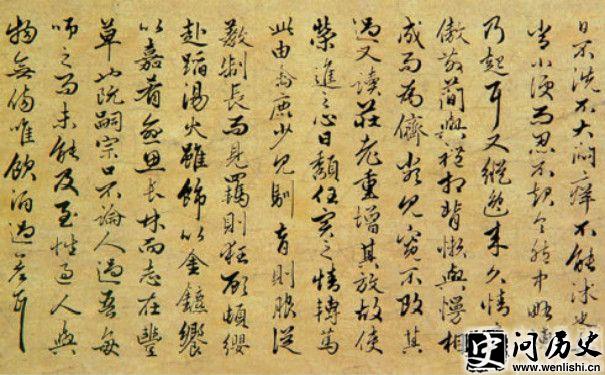 日不洗不大悶癢不能沐也
當小便而忍不起令胞中略轉
乃起耳又縱逸来久情
傲散簡與禮相背懶與慢相
成而為儕類見寬不攻其
過又读莊老重增其放故使
榮進之心日頹任實之情轉篤
此由禽鹿少見馴育則服從
教制長而見羈則狂顧頓纓
赴蹈湯火雖飾以金鑣饗
以嘉肴愈思長林而志在豐
草也阮嗣宗口不論人過吾每
師之而未能及至性過人與
物無傷唯飲酒過差耳
史
问历史
www.wenlishi.cn